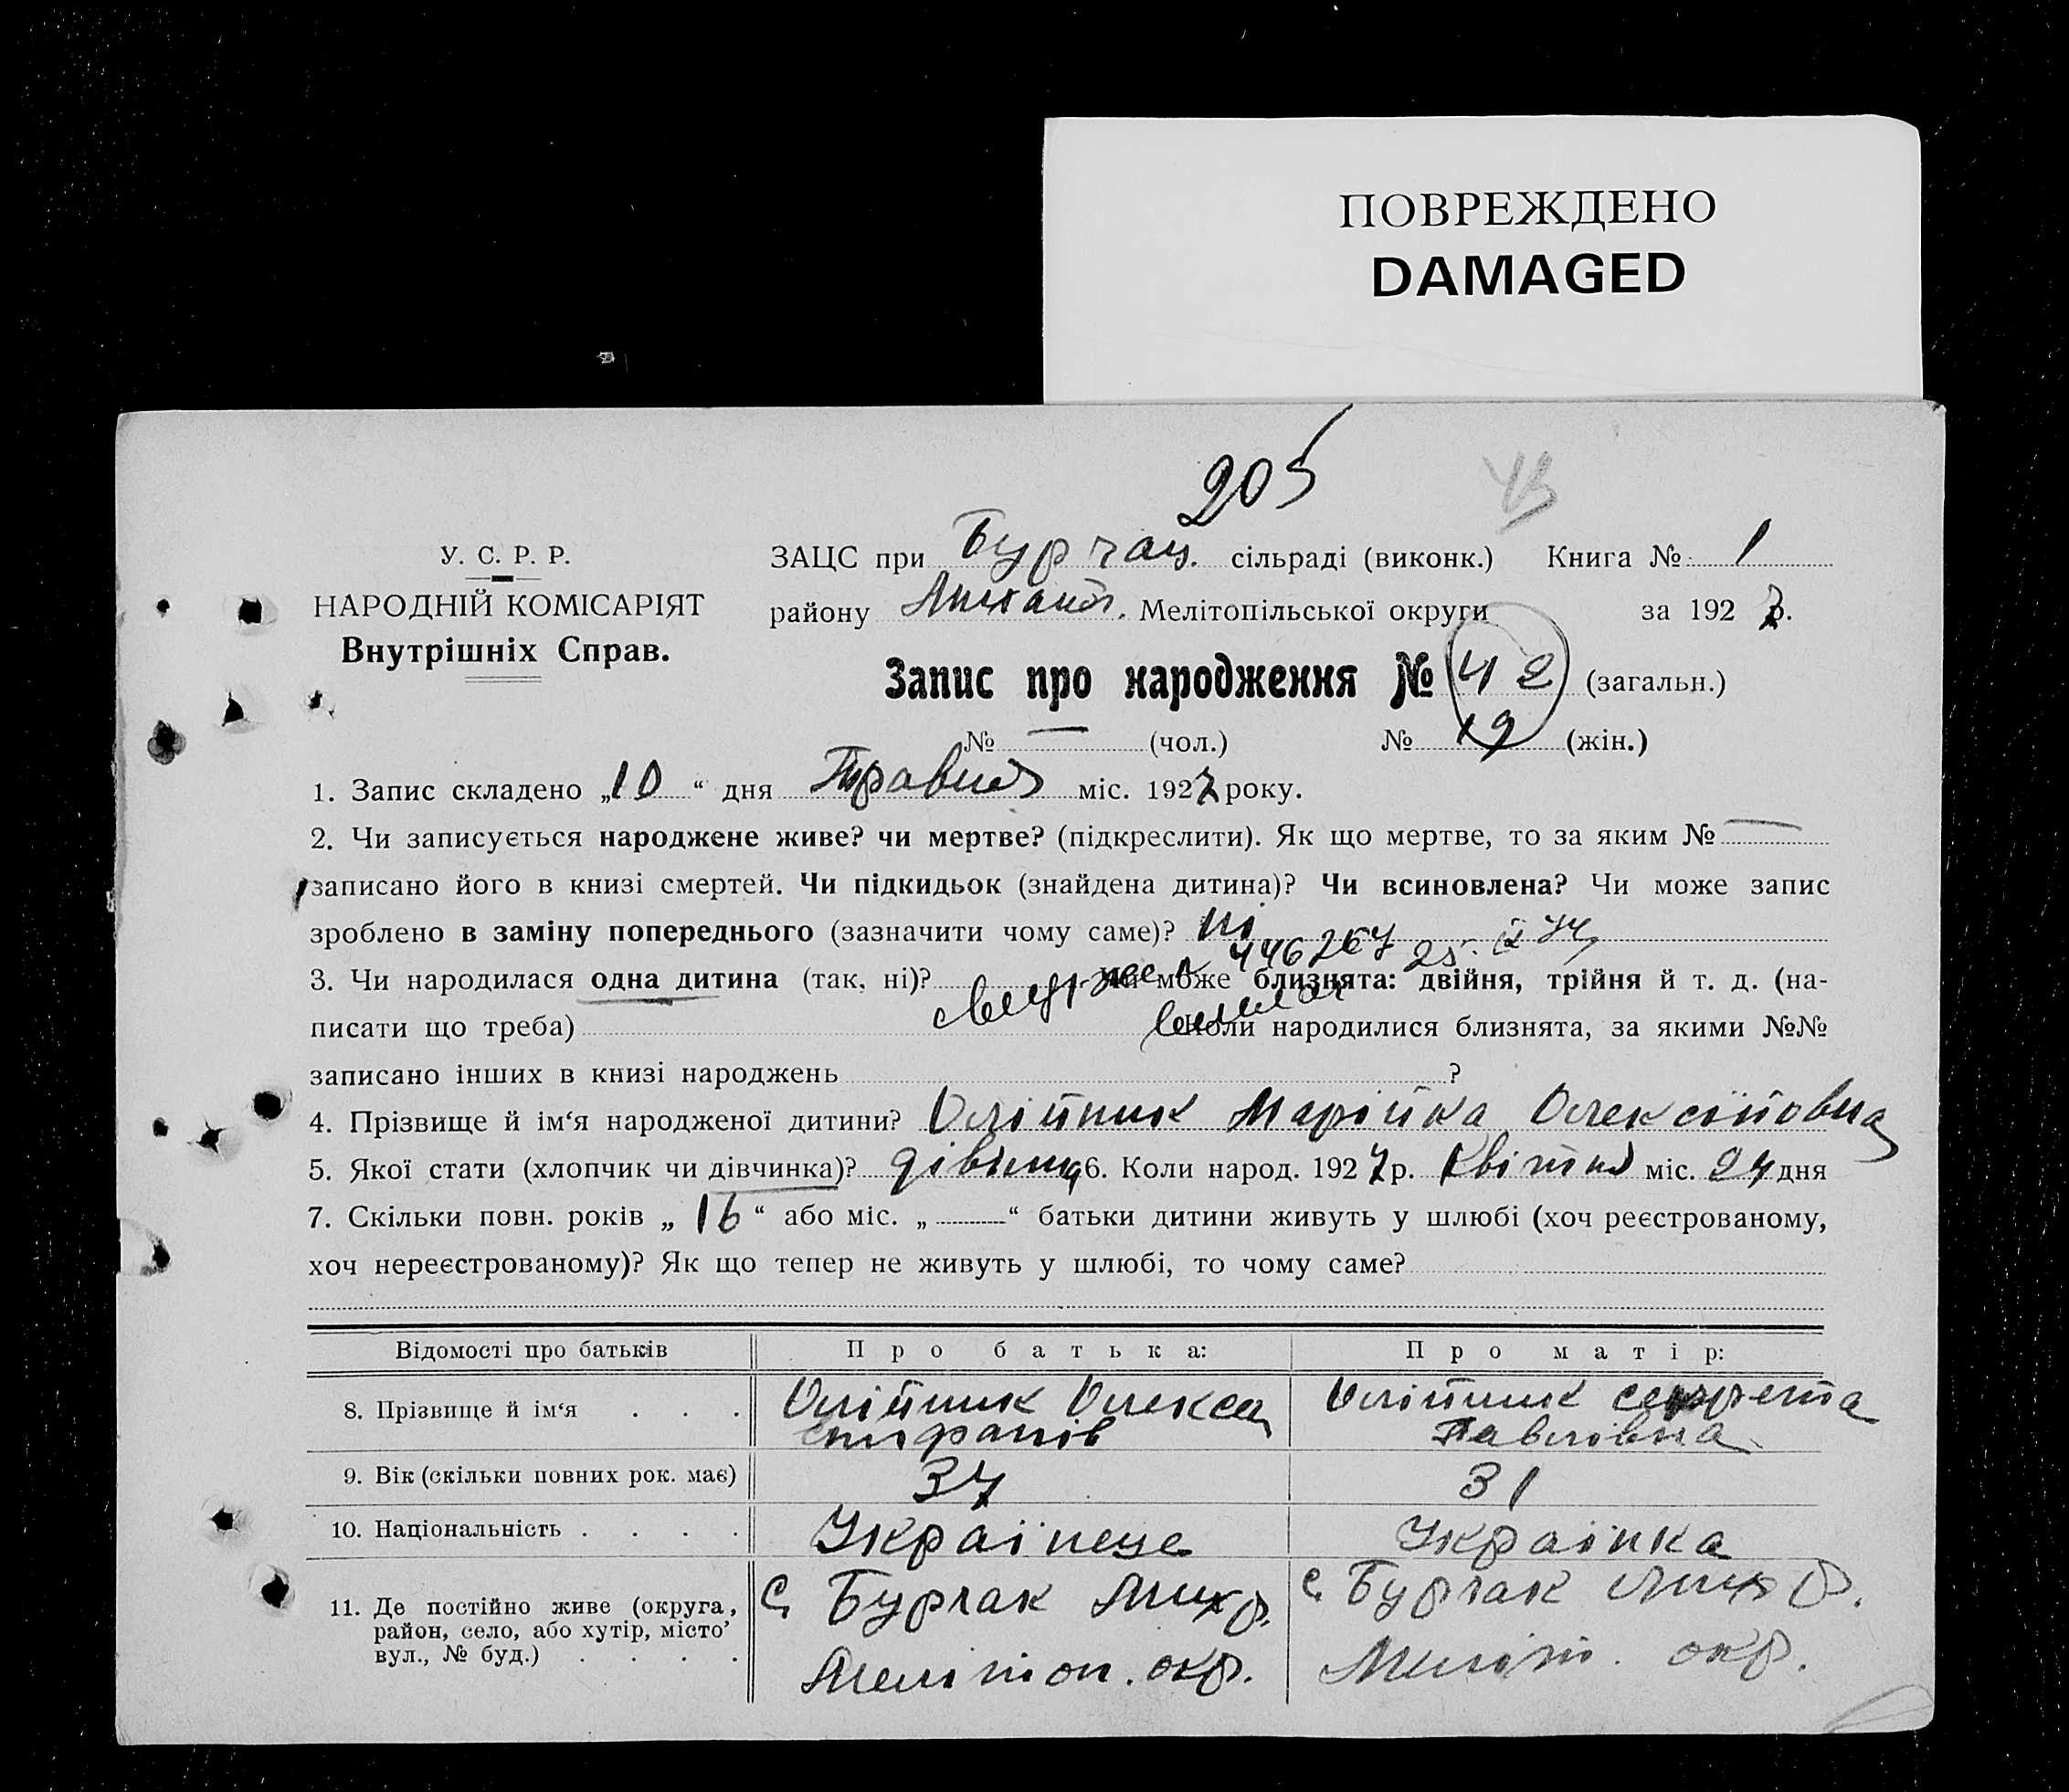 ПОВРЕЖДЕНО
DAMAGED
205
43
У. С. Р. Р.
НАРОДНІЙ КОМІСАРІЯТ
Внутрішніх Справ.
ЗАЦС при Бурчац. сільраді (виконк.) Книга № 1
району Михайл. Мелітопільської округи за 1927 р.
Запис про народження № 42 (загальн.)
№ — (чол.) № 19 (жін.)
1. Запис складено „10“ дня Травня міс. 1927 року.
2. Чи записується народжене живе? чи мертве? (підкреслити). Як що мертве, то за яким № —
записано його в книзі смертей. Чи підкидьок (знайдена дитина)? Чи всиновлена? Чи може запис
зроблено в заміну попереднього (зазначити чому саме)? ні
446267 25. IX 74
3. Чи народилася одна дитина (так, ні)? Чи може близнята: двійня, трійня й т. д. (на-
писати що треба) Коли народилися близнята, за якими №№
записано інших в книзі народжень ?
4. Прізвище й ім‘я народженої дитини? Олійник Марійка Олексійовна
5. Якої стати (хлопчик чи дівчинка)? дівчина 6. Коли народ. 1927 р. Квітня міс. 24 дня
7. Скільки повн. років „16“ або міс. „ “ батьки дитини живуть у шлюбі (хоч реєстрованому,
хоч нереєстрованому)? Як що тепер не живуть у шлюбі, то чому саме?
Відомості про батьків Про батька: Про матір:
8. Прізвище й ім‘я . . . Олійник Олекса Олійник
Павлівна
9. Вік (скільки повних рок. має) 37 31
10. Національність . . . . Українець Українка
11. Де постійно живе (округа, район, село, або хутір, місто’ вул., № буд.) . . . .
с. Бурчак Мих р. с. Бурчак Мих р.
Мелітоп. окр. Меліт. окр.